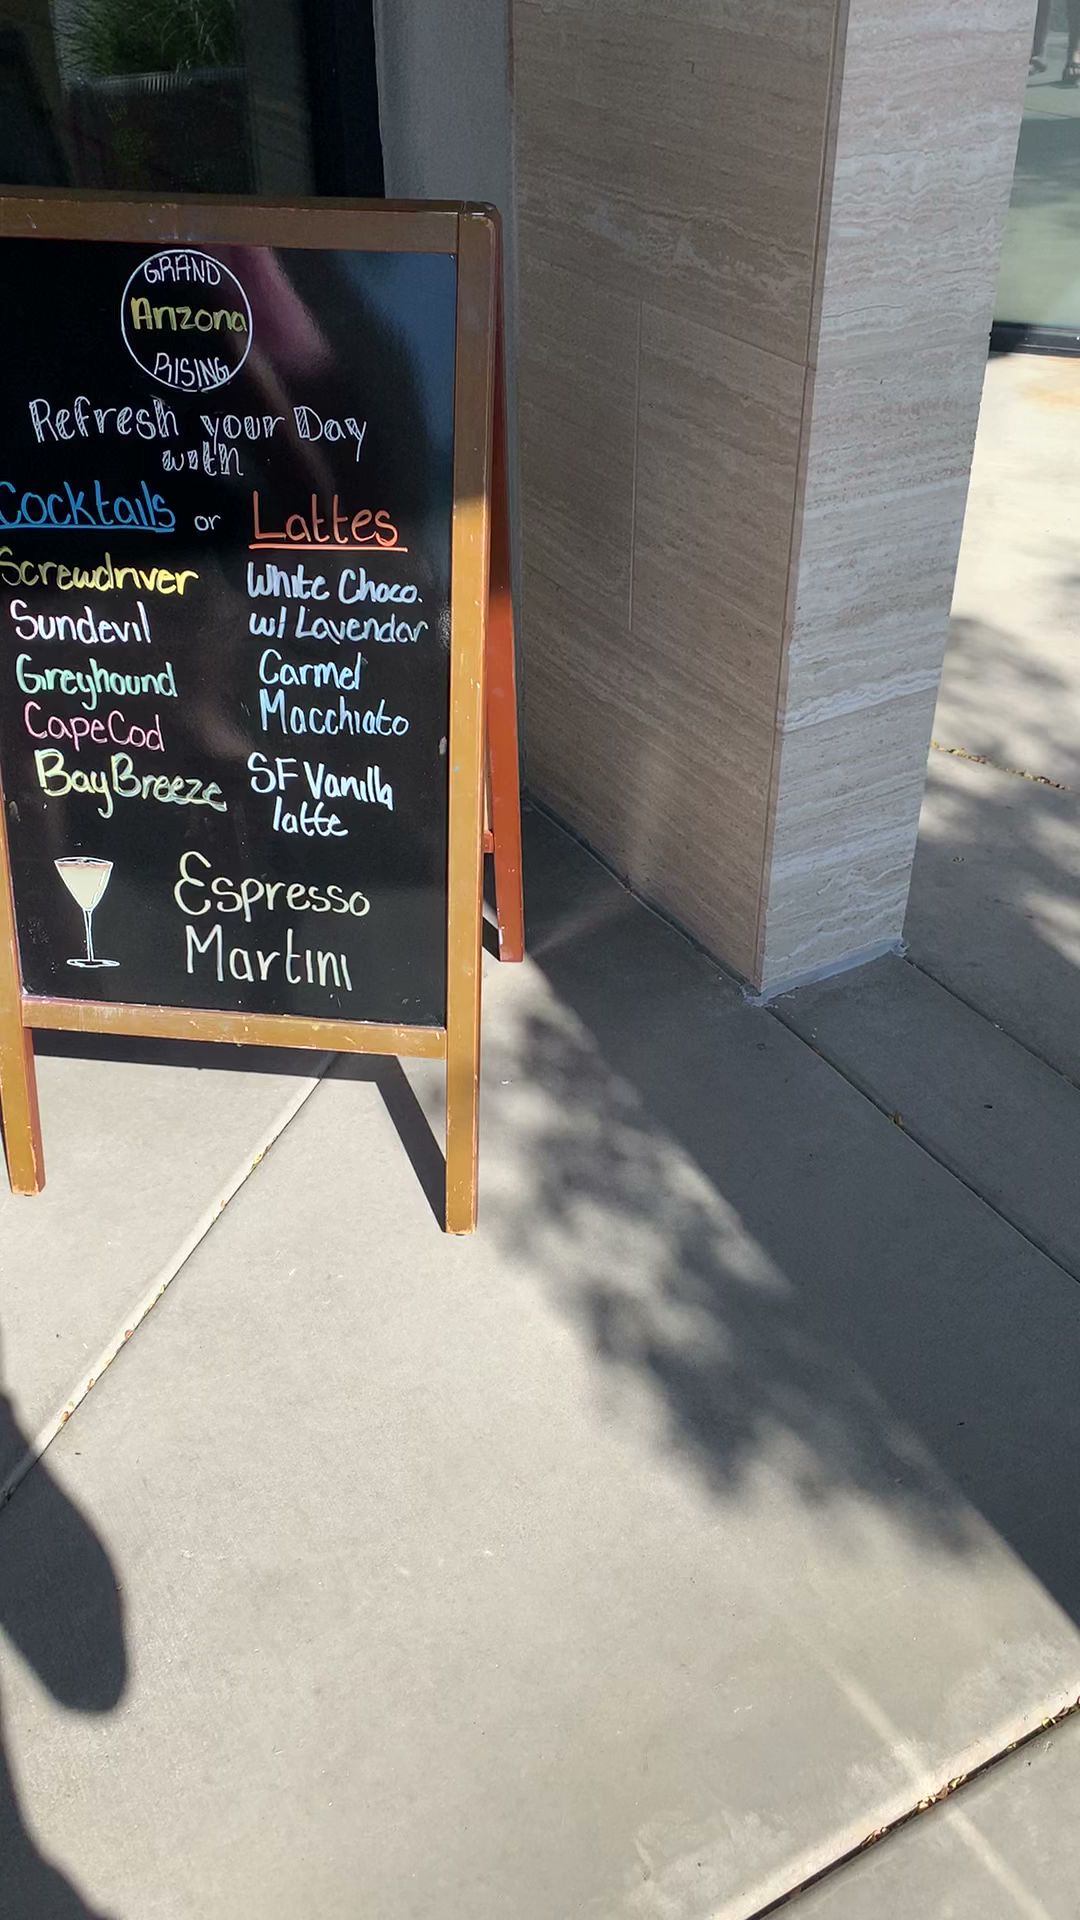 GRAND
Arizona
RISING
Refresh your Day
with
Cocktails or Lattes
Screwdriver
Sundevil
Greyhound
CapeCod
BayBreeze
White Choco.
w/ Lavendar
Carmel
Macchiato
SF Vanilla
latte
Espresso
Martini